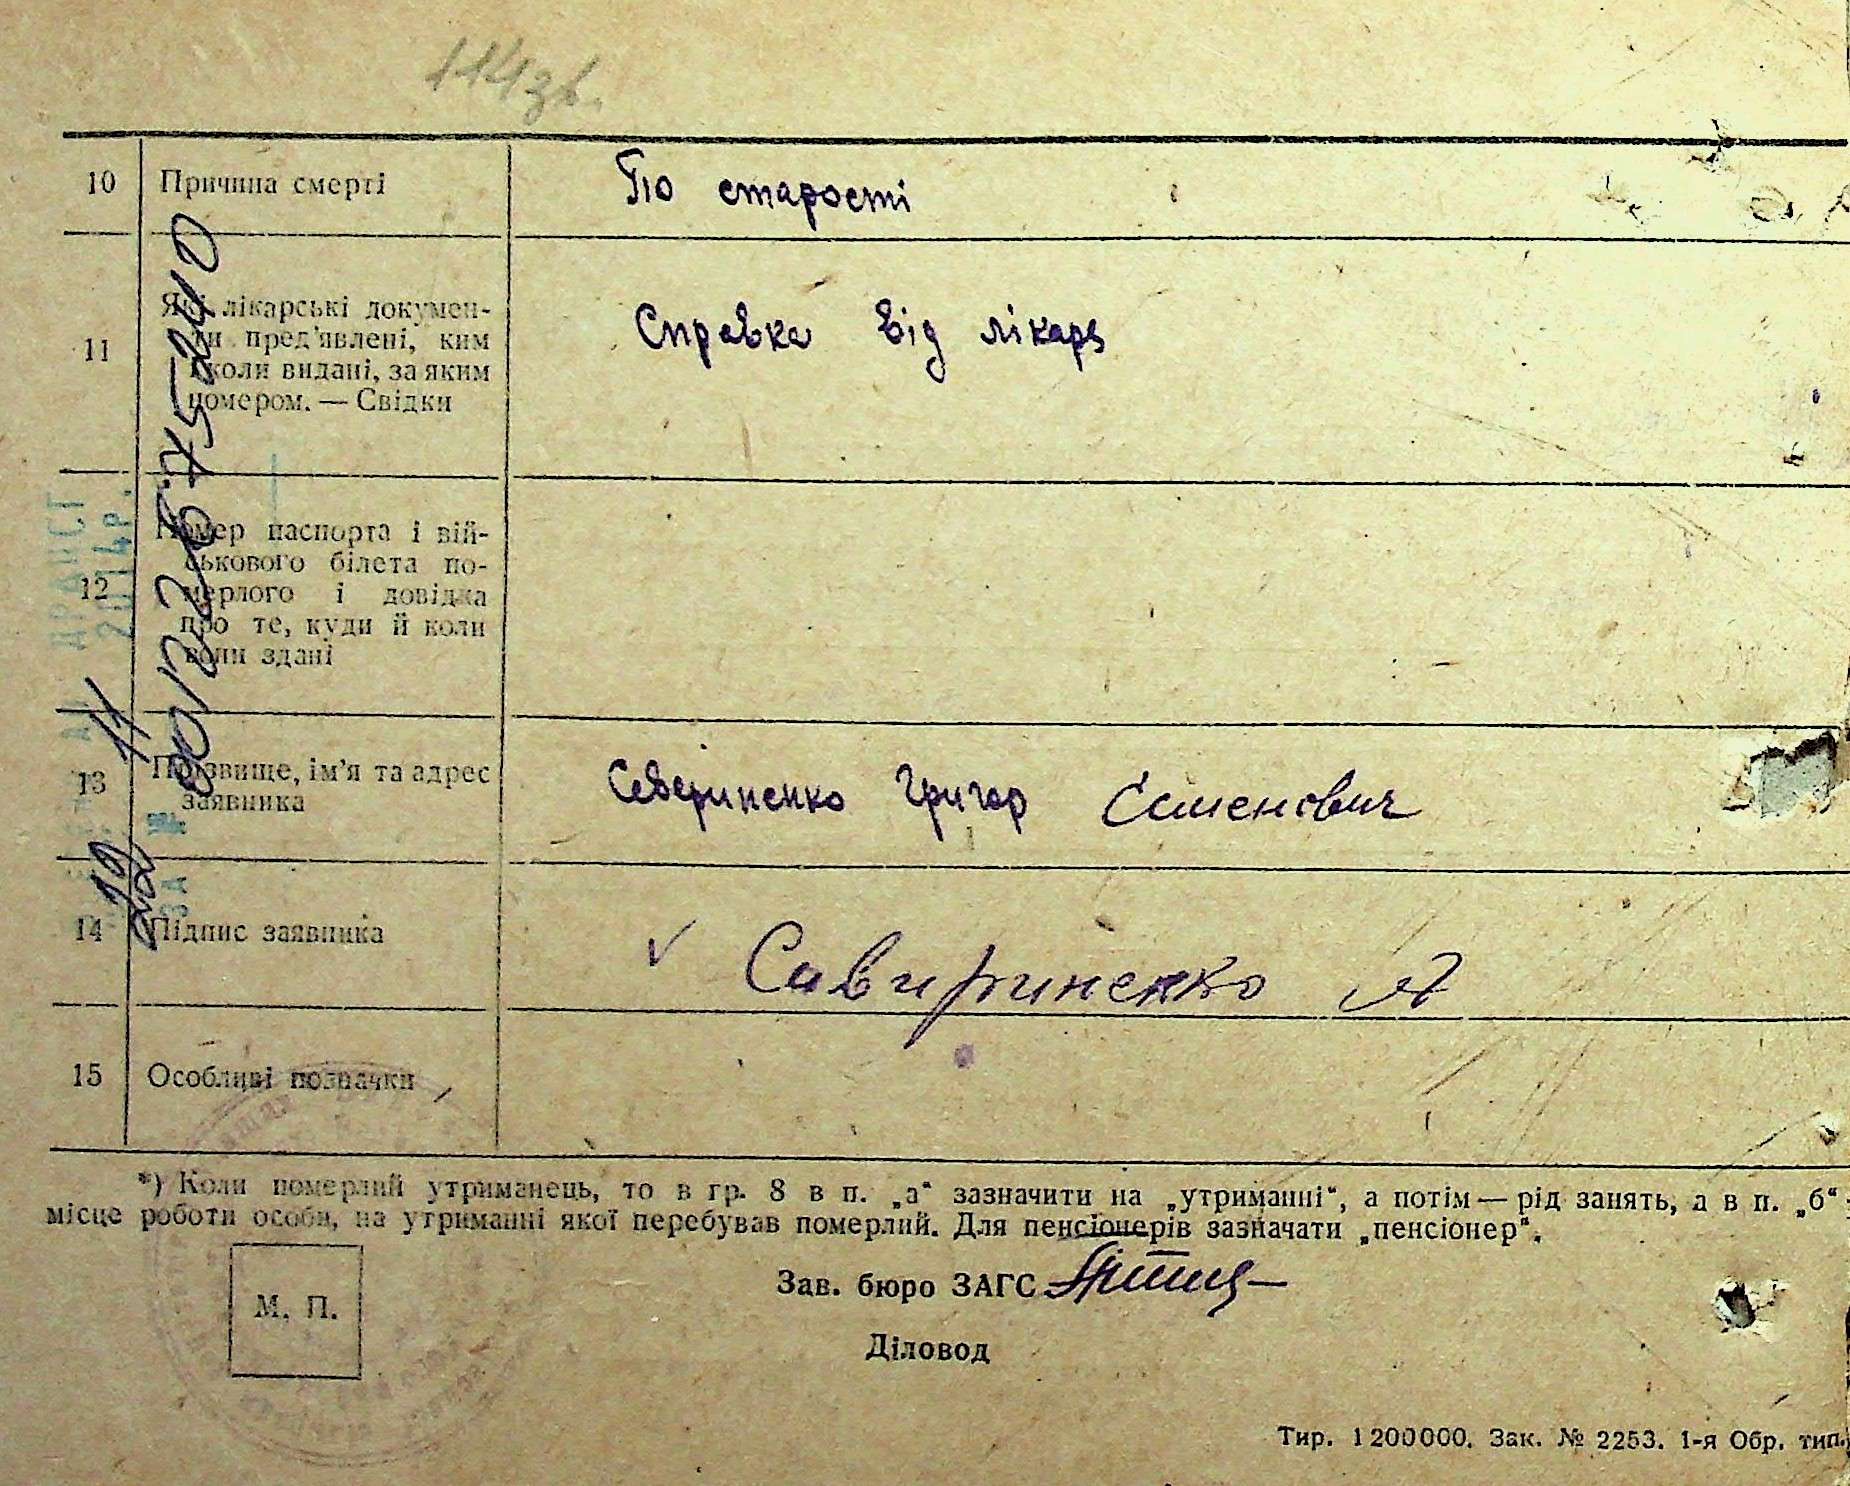 114зв.
10 Причина смерті По старості
11 Які лікарські докумен-
ти пред'явлені, ким
і коли видані, за яким
номером. — Свідки
Справка від лікаря
12 Номер паспорта і вій-
ськового білета по-
мерлого і довідка
про те, куди й коли
вони здані
13 Прізвище, ім'я та адрес
заявника
Севериненко Григор Семенович
14 Підпис заявника √ Сивириненко
15 Особливі позначки
*) Коли померлий утриманець, то в гр. 8 в п. „а" зазначити на „утриманні", а потім — рід занять, а в п. „б"
місце роботи особи, на утриманні якої перебував померлий. Для пенсіонерів зазначати „пенсіонер".
М. П.
Зав. бюро ЗАГС
Діловод
Тир. 1200000. Зак. № 2253. 1-я Обр. тип.
ДРАЦСТ
2014р.
22 11
ЗА №
00122675240